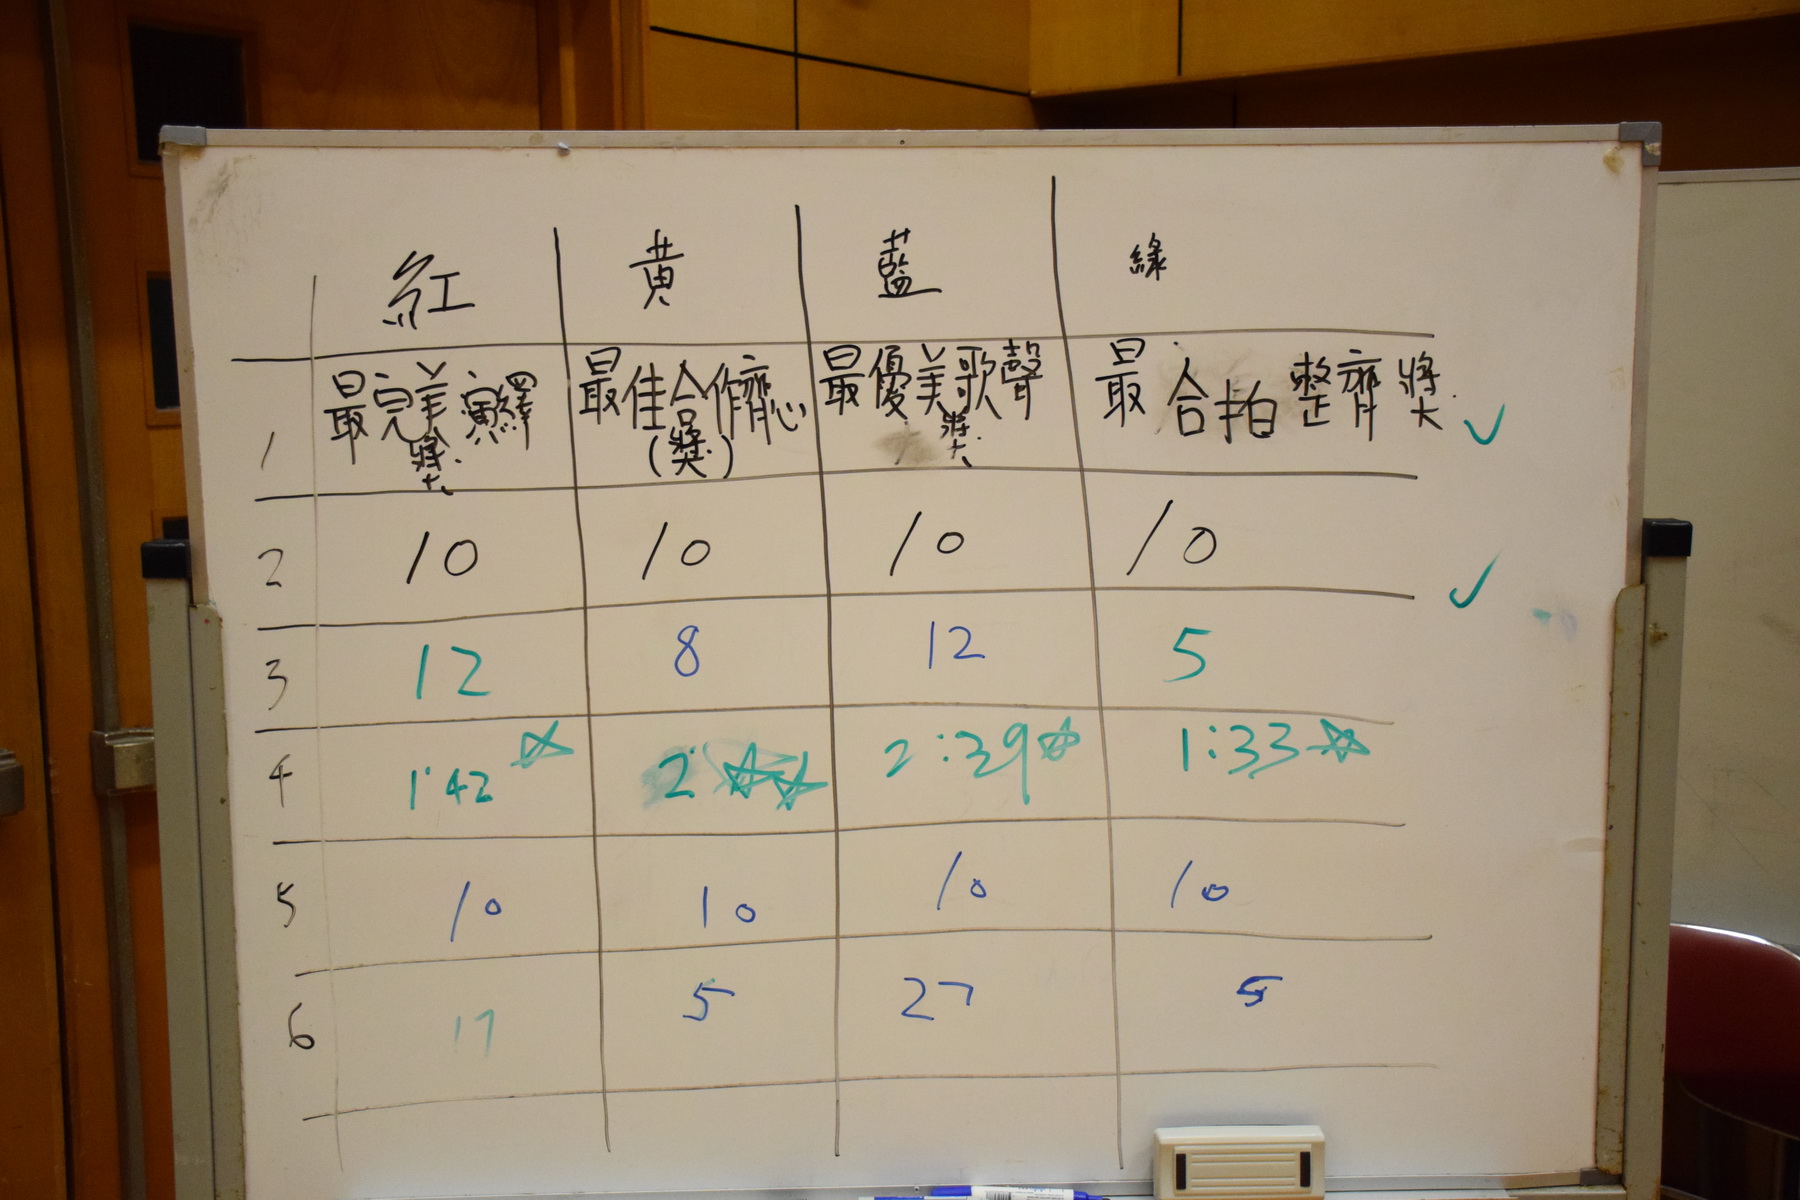 紅 黃 藍 綠
1 最完美演繹獎 最佳合作齊心(獎) 最優美歌聲獎 最合拍整齊獎
2 10 10 10 10
3 12 8 12 5
4 1:42 2: 2:39 1:33
5 10 10 10 10
6 17 5 27 5